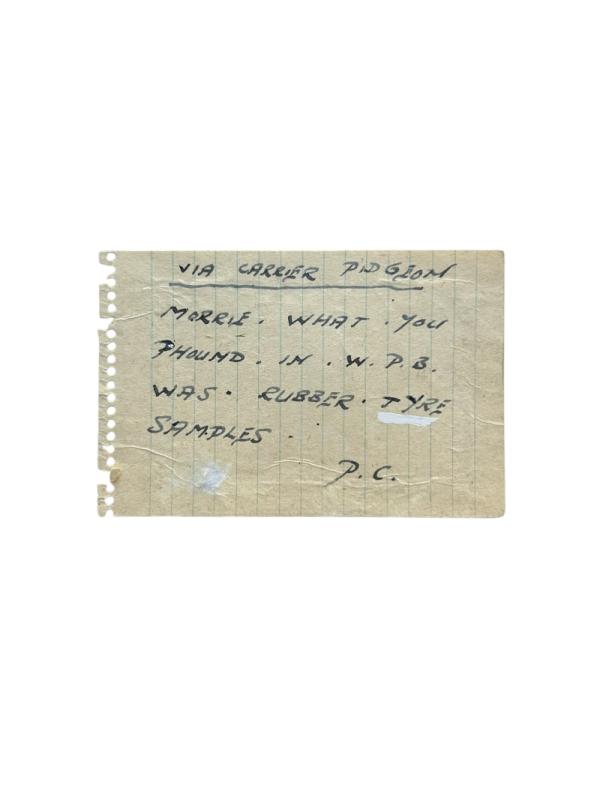 VIA CARRIER PIDGEON
MORRIE. WHAT. YOU
PHOUND. IN. W.P.B.
WAS. RUBBER. TYRE
SAMPLES.
P.C.